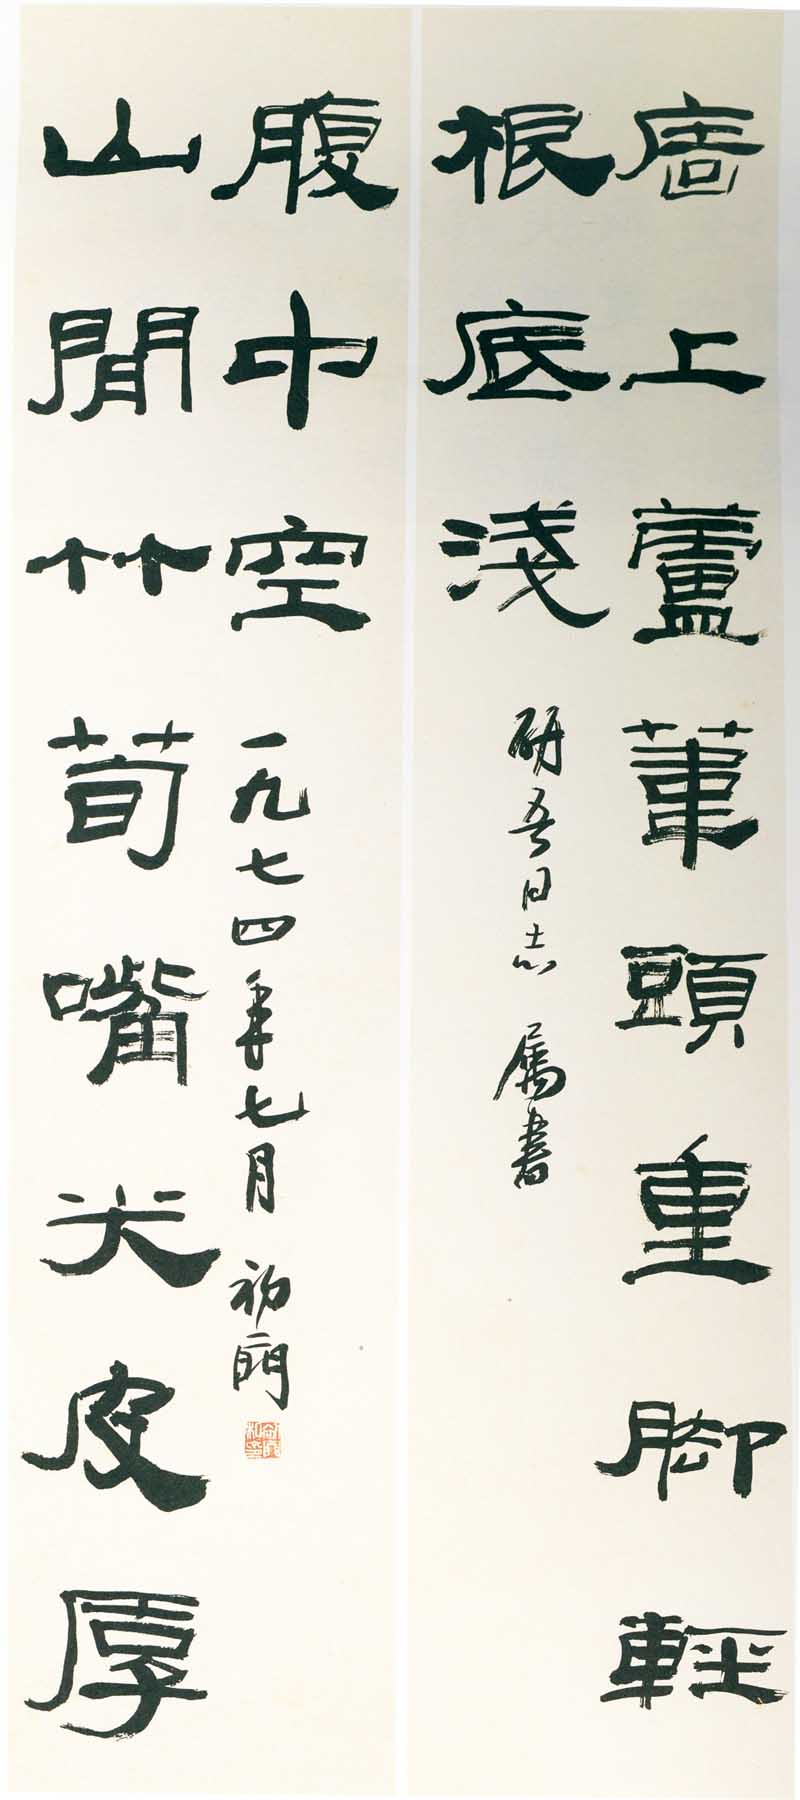 廧上蘆葦頭重脚輕
根底淺
研吾同志 屬書
山閒竹荀嘴尖皮厚
腹中空
一九七四年七月